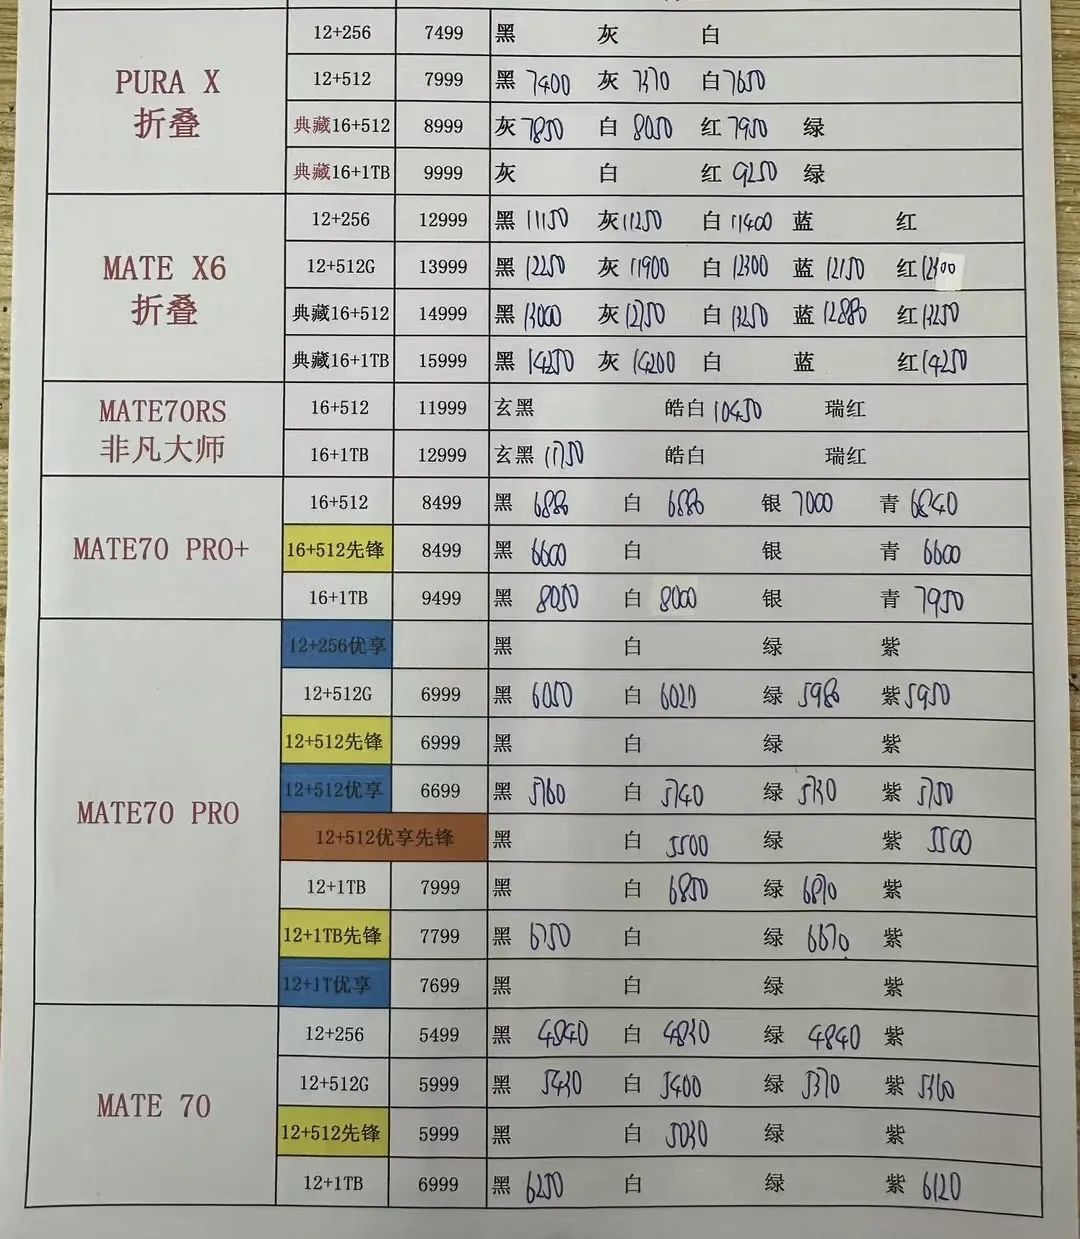 12+256 7499 黑 灰 白
PURA X
折叠
12+512 7999 黑 7400 灰 7370 白 7650
典藏16+512 8999 灰 7850 白 8050 红 7950 绿
典藏16+1TB 9999 灰 白 红 9250 绿
MATE X6
折叠
12+256 12999 黑 11150 灰 11250 白 11400 蓝 红
12+512G 13999 黑 12250 灰 11900 白 12300 蓝 12150 红
典藏16+512 14999 黑 13000 灰 12750 白 13250 蓝 12880 红 13250
典藏16+1TB 15999 黑 14250 灰 14200 白 蓝 红 14250
MATE70RS
非凡大师
16+512 11999 玄黑 皓白 10450 瑞红
16+1TB 12999 玄黑 11750 皓白 瑞红
MATE70 PRO+
16+512 8499 黑 6880 白 6880 银 7000 青 6840
16+512先锋 8499 黑 6600 白 银 青 6600
16+1TB 9499 黑 8050 白 8000 银 青 7950
MATE70 PRO
12+256优享 黑 白 绿 紫
12+512G 6999 黑 6050 白 6020 绿 5980 紫 5950
12+512先锋 6999 黑 白 绿 紫
12+512优享 6699 黑 5760 白 5740 绿 5730 紫 5750
12+512优享先锋 黑 白 5500 绿 紫 5500
12+1TB 7999 黑 白 6850 绿 6870 紫
12+1TB先锋 7799 黑 6750 白 绿 6670 紫
12+1T优享 7699 黑 白 绿 紫
MATE 70
12+256 5499 黑 4840 白 4830 绿 4840 紫
12+512G 5999 黑 5430 白 5400 绿 5370 紫 5360
12+512先锋 5999 黑 白 5030 绿 紫
12+1TB 6999 黑 6250 白 绿 紫 6120